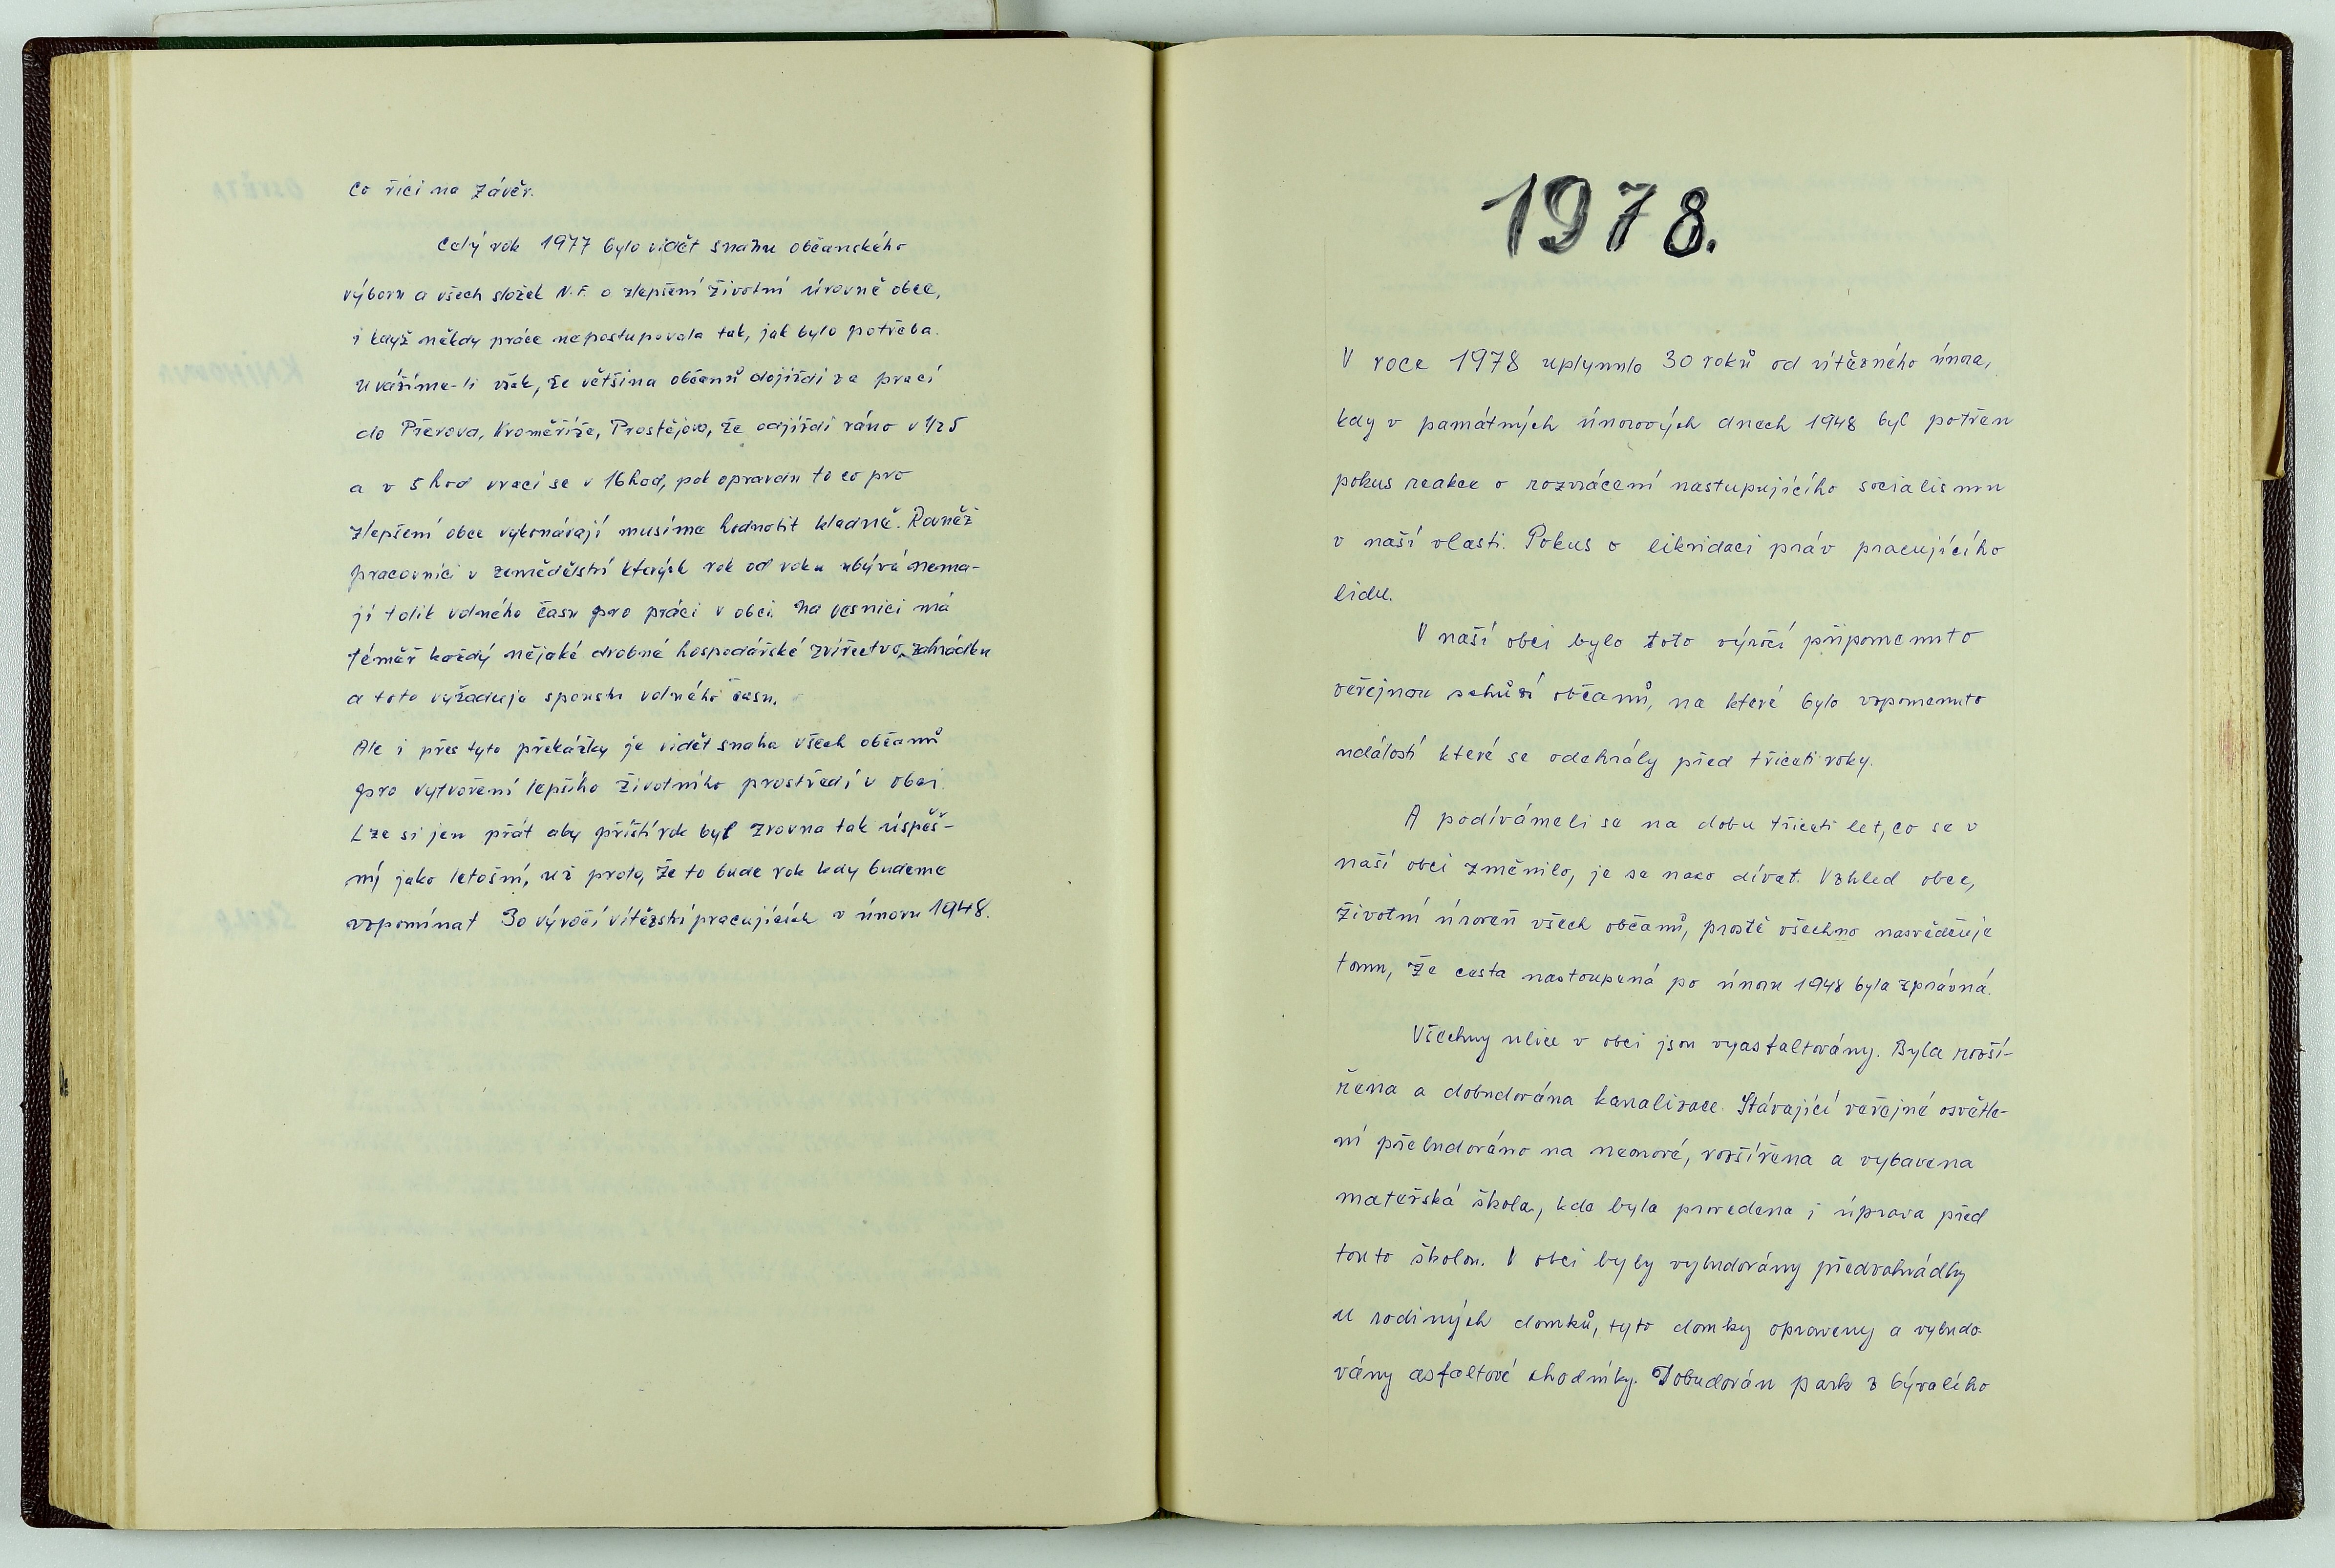 Co říci na závěr.
Celý rok 1977 bylo vidět snahu občanského
výboru a všech složek N.F. o zlepšení životní úrovně obce,
i když někdy práce nepostupovala tak, jak bylo potřeba.
Uvážíme-li však, že většina občanů dojíždí za prací
do Přerova, Kroměříže, Prostějova, že odjíždí ráno v 1/2 5
a v 5 hod vrací se v 16 hod, pak opravdu to co pro
zlepšení obce vykonávají musíme hodnotit kladně. Rovněž
pracovníci v zemědělství kterých rok od roku ubývá nema-
jí tolik volného času pro práci v obci. Na vesnici má
téměř každý nějaké drobné hospodářské zvířectvo, zahrádku
a toto vyžaduje spoustu volného času.
Ale i přes tyto překážky je vidět snaha všech občanů
pro vytvoření lepšího životního prostředí v obci.
Lze si jen přát aby příští rok byl zrovna tak úspěš-
ný jako letošní, už proto, že to bude rok kdy budeme
vzpomínat 30 výročí vítězství pracujících v únoru 1948.
1978.
V roce 1978 uplynulo 30 roků od vítězného února,
kdy v památných únorových dnech 1948 byl potřen
pokus reakce o rozvrácení nastupujícího socialismu
v naší vlasti. Pokus o likvidaci práv pracujícího
lidu.
V naší obci bylo toto výročí připomenuto
veřejnou schůzí občanů, na které bylo vzpomenuto
událostí které se odehrály před třiceti roky.
A podívámeli se na dobu třiceti let, co se v
naší obci změnilo, je se naco dívat. Vzhled obce,
životní úroveň všech občanů, prostě všechno nasvědčuje
tomu, že cesta nastoupená po únoru 1948 byla zprávná.
Všechny ulice v obci jsou vyasfaltovány. Byla rozší-
řena a dobudována kanalizace. Stávající veřejné osvětle-
ní přebudováno na neonové, rozšířena a vybavena
mateřská škola, kde byla provedena i úprava před
touto školou. V obci byly vybudovány předzahrádky
u rodiných domků, tyto domky opraveny a vybudo-
vány asfaltové chodníky. Dobudován park z bývalého